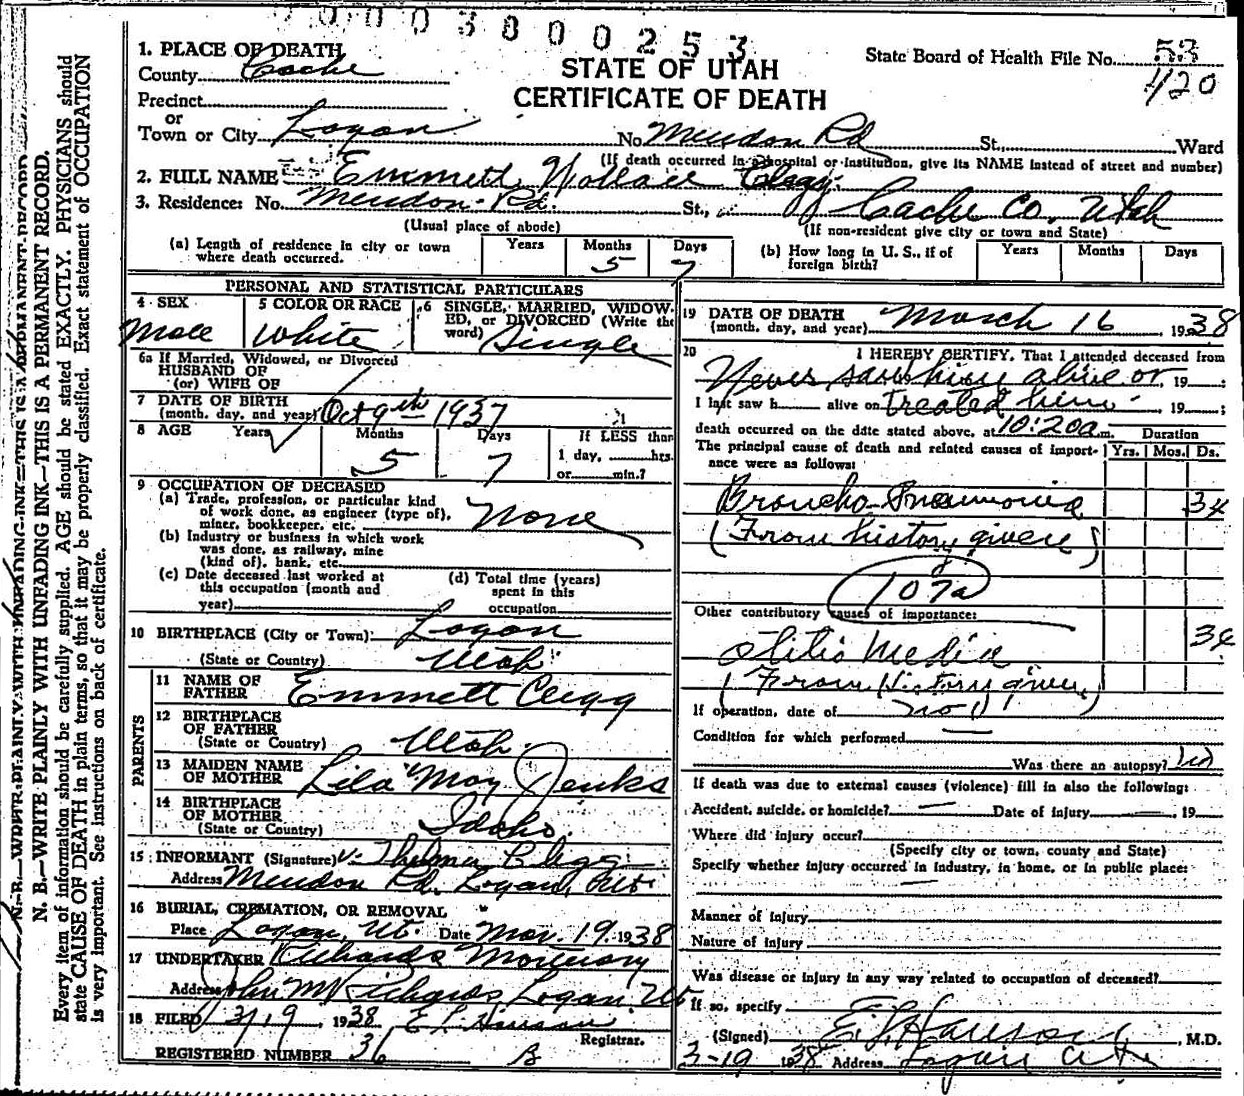 7 0 0 0 3 8 0 0 2 5 3
1. PLACE OF DEATH
County Cache
Precinct
or
Town or City Logan No. Mendon Rd St. Ward
(If death occurred in a hospital or institution, give its NAME instead of street and number)
STATE OF UTAH
CERTIFICATE OF DEATH
State Board of Health File No. 53
420
2. FULL NAME Emmett Wallace Clegg
3. Residence: No. Mendon Rd. St., Cache Co. Utah
(Usual place of abode) (If non-resident give city or town and State)
(a) Length of residence in city or town where death occurred. Years Months 5 Days 7
(b) How long in U. S., if of foreign birth? Years Months Days
PERSONAL AND STATISTICAL PARTICULARS
4 SEX Male
5 COLOR OR RACE White
6 SINGLE, MARRIED, WIDOWED, or DIVORCED (Write the word) Single
6a If Married, Widowed, or Divorced
HUSBAND OF
(or) WIFE OF
7 DATE OF BIRTH
(month, day, and year) Oct 9th 1937
8 AGE Years Months 5 Days 7 If LESS than
1 day, hrs.
or min.?
9 OCCUPATION OF DECEASED
(a) Trade, profession, or particular kind
of work done, as engineer (type of),
miner, bookkeeper, etc. None
(b) Industry or business in which work
was done, as railway, mine
(kind of), bank, etc.
(c) Date deceased last worked at
this occupation (month and
year)
(d) Total time (years)
spent in this
occupation
10 BIRTHPLACE (City or Town) Logan
(State or Country) Utah
PARENTS
11 NAME OF
FATHER Emmett Clegg
12 BIRTHPLACE
OF FATHER
(State or Country) Utah
13 MAIDEN NAME
OF MOTHER Lila May Jenks
14 BIRTHPLACE
OF MOTHER
(State or Country) Idaho
15 INFORMANT (Signature) Thelma Clegg
Address Mendon Rd. Logan, Ut.
16 BURIAL, CREMATION, OR REMOVAL
Place Logan, Ut. Date Mar. 19. 1938
17 UNDERTAKER Richards Mortuary
Address John M Richards, Logan, Ut
18 FILED 3/19, 1938 E L Hanson
Registrar.
REGISTERED NUMBER 36
19 DATE OF DEATH
(month, day, and year) March 16 1938
20 I HEREBY CERTIFY, That I attended deceased from
Never saw him alive or, 19 ;
I last saw h alive on treated him, 19 ;
death occurred on the date stated above, at 10:20a m. Duration
The principal cause of death and related causes of importance were as follows: Yrs. Mos. Ds.
Broncho-Pneumonia 34
(From history given)
107a
Other contributory causes of importance:
Otitis Media 34
(From history given)
If operation, date of no
Condition for which performed
Was there an autopsy? no
If death was due to external causes (violence) fill in also the following:
Accident, suicide, or homicide? — Date of injury — , 19
Where did injury occur?
(Specify city or town, county and State)
Specify whether injury occurred in industry, in home, or in public place:
Manner of injury
Nature of injury
Was disease or injury in any way related to occupation of deceased?
If so, specify
(Signed) E. L. Hanson, M.D.
3-19 1938 Address Logan Utah
N. B.—WRITE PLAINLY WITH UNFADING INK—THIS IS A PERMANENT RECORD.
Every item of information should be carefully supplied. AGE should be stated EXACTLY. PHYSICIANS should
state CAUSE OF DEATH in plain terms, so that it may be properly classified. Exact statement of OCCUPATION
is very important. See instructions on back of certificate.